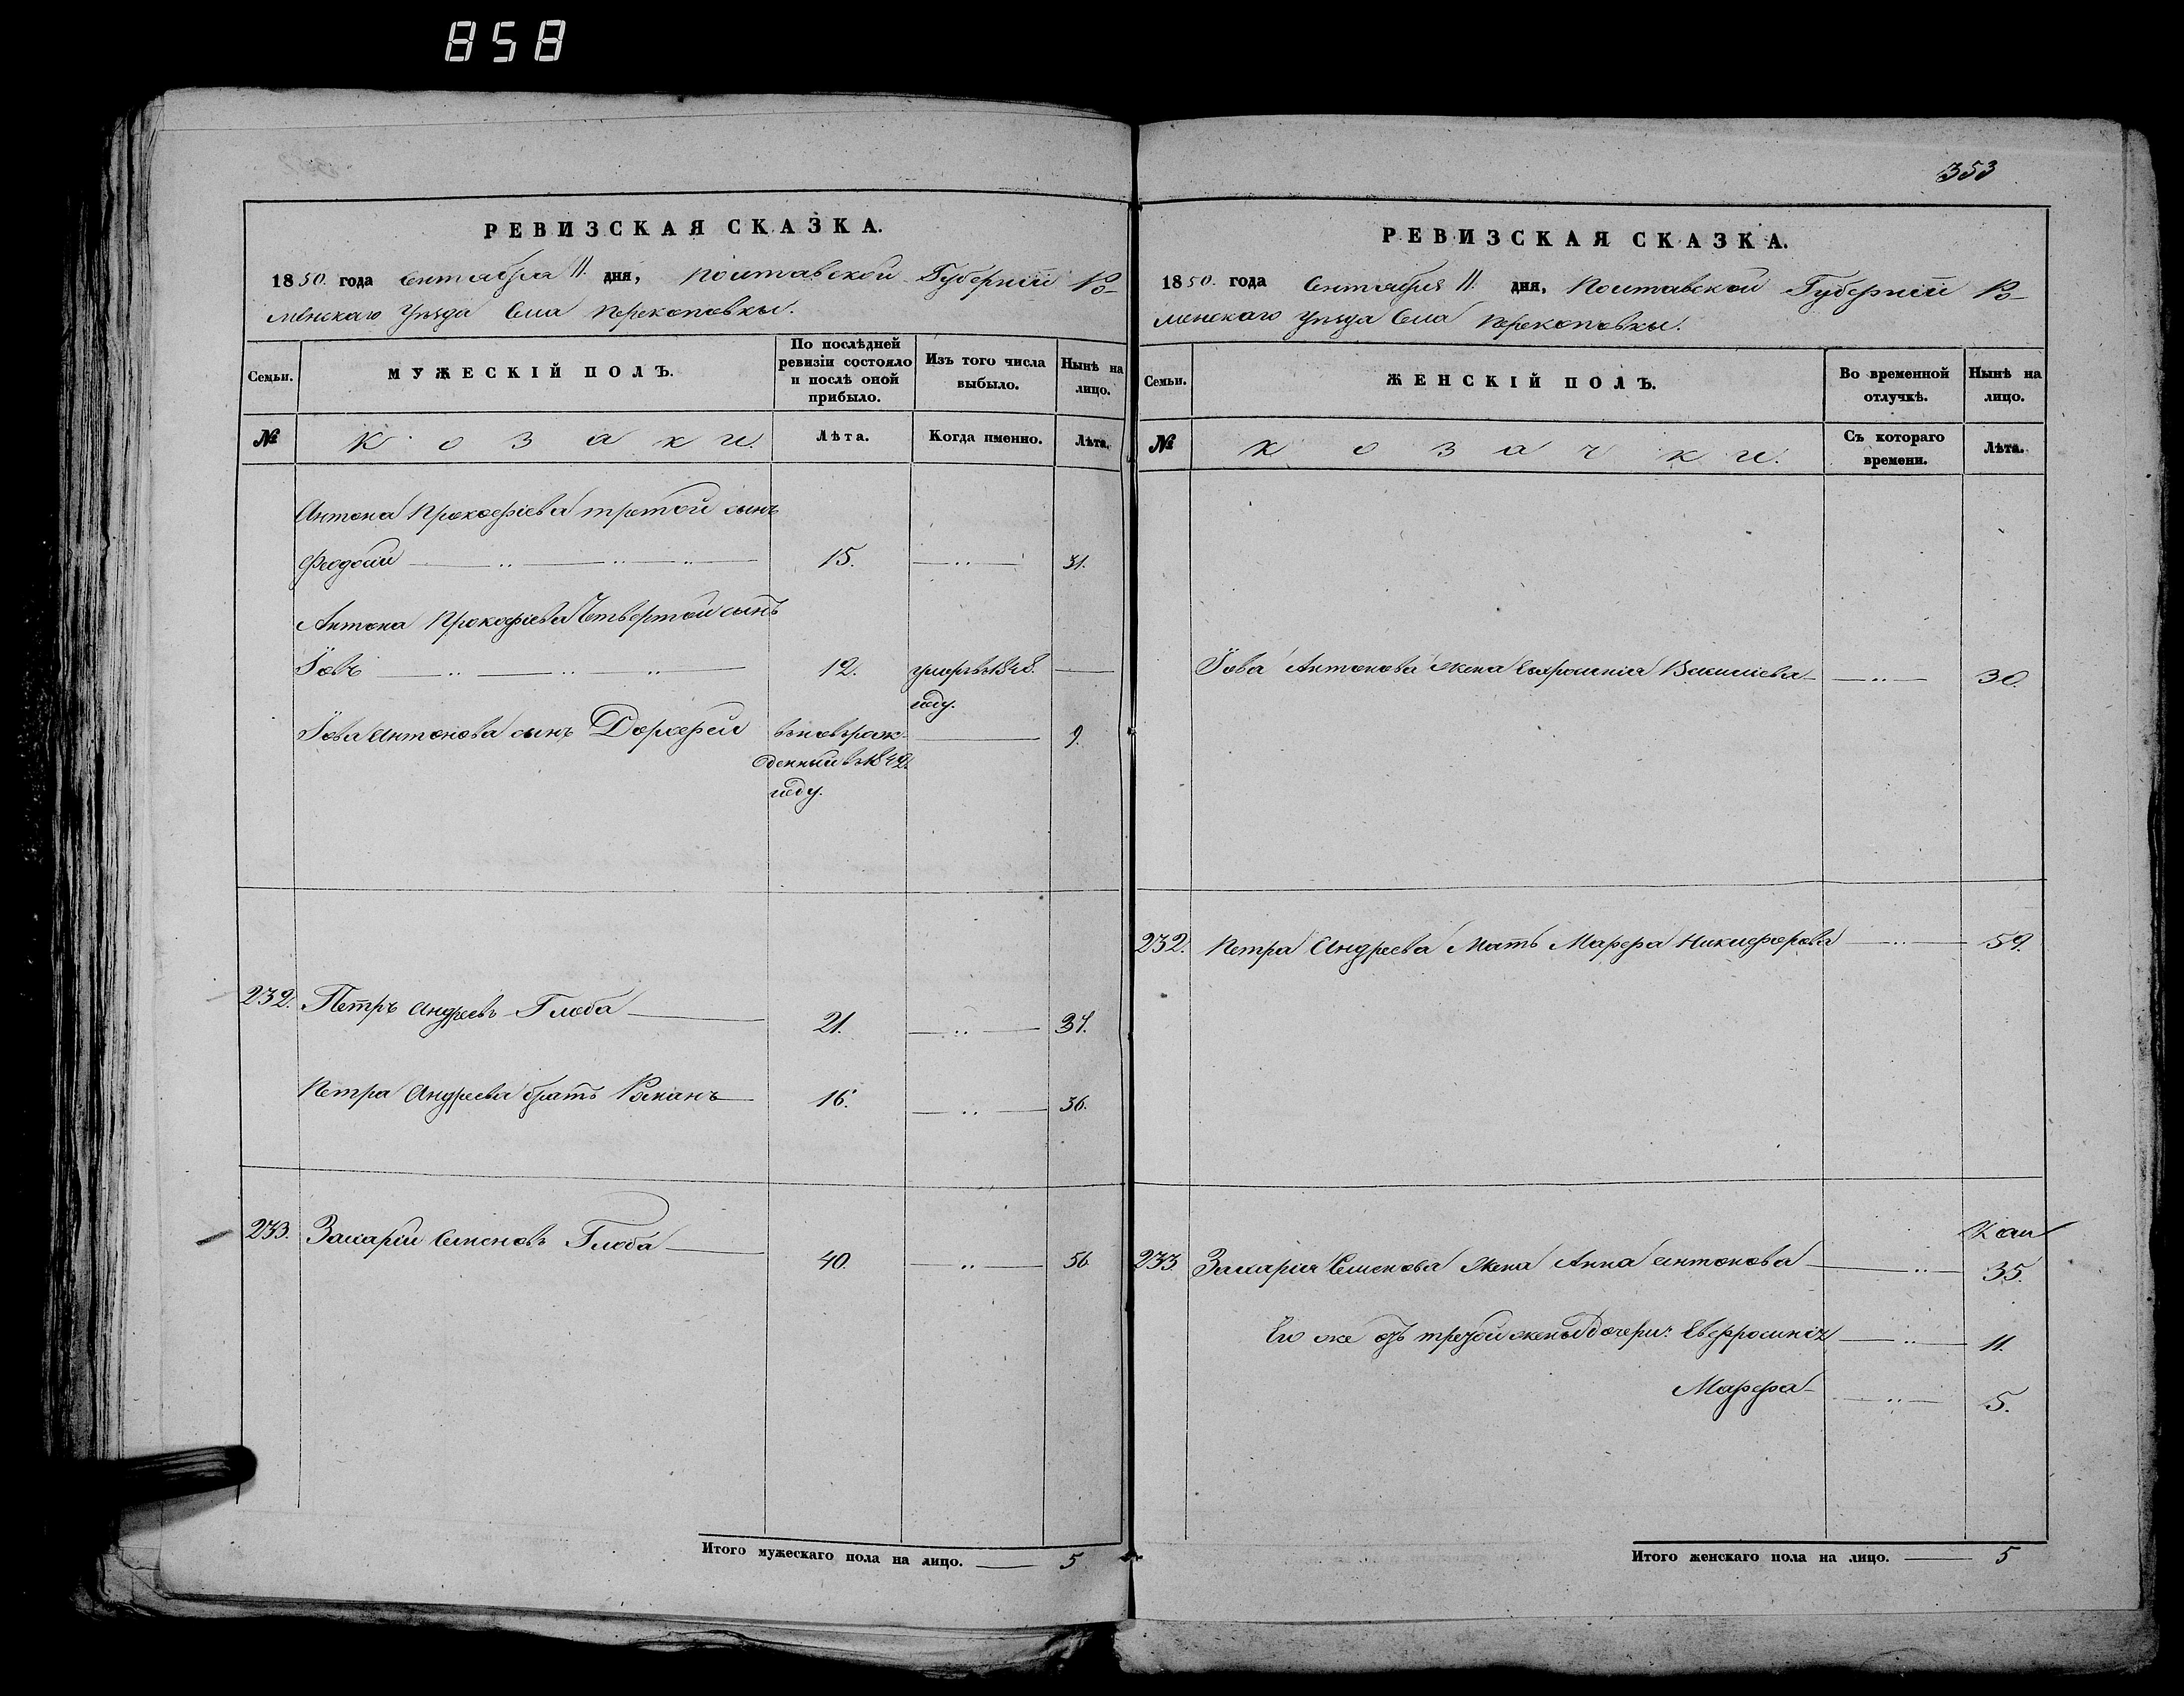 858
РЕВИЗСКАЯ СКАЗКА.
1850. года Сентября 11. дня, Полтавской Губерніи Ро-
менскаго Уѣзда Села Перекоповки.
Семьи.
МУЖЕСКІЙ ПОЛЪ.
По послѣдней
ревизіи состояло
и послѣ оной
прибыло.
Изъ того числа
выбыло.
Нынѣ на
лицо.
№
Козаки.
Лѣта.
Когда именно.
Лѣта.
Антона Прокофіева третой сынъ
Феодосій 15. 31.
Антона Прокофіева Четвертой сынъ
Іовъ 12. умеръ въ 1848.
году.
Іова Антонова сынъ Дорофей вновьрож-
денный въ 1842.
году. 9.
232. Петръ Андреевъ Глоба 21. 37.
Петра Андреева братъ Романъ 16. 36.
233. Захарій Семеновъ Глоба 40. 56.
Итого мужескаго пола на лицо. 5
353
РЕВИЗСКАЯ СКАЗКА.
1850. года Сентября 11. дня, Полтавской Губерніи Ро-
менскаго Уѣзда Села Перекоповки.
Семьи.
ЖЕНСКІЙ ПОЛЪ.
Во временной
отлучкѣ.
Нынѣ на
лицо.
№
Козачки.
Съ котораго
времени.
Лѣта.
Іова Антонова жена 30.
232. Петра Андреева Мать Марфа Никифорова 59.
233 Захарія Семенова жена Анна Антонова 35.
Его же отъ жены дочери: Евфросинія 11.
Марфа 5.
Итого женскаго пола на лицо. 5